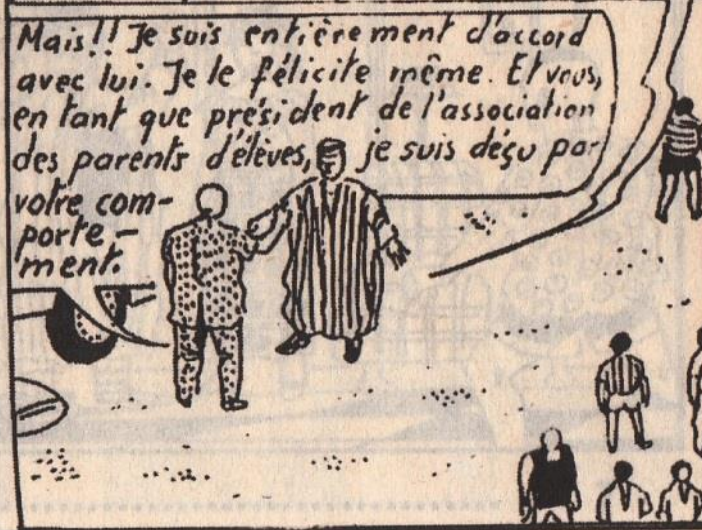 Mais!! Je suis entièrement d'accord
avec lui. Je le félicite même. Et vous,
en tant que président de l'association
des parents d'élèves, je suis déçu par
votre com-
porte-
ment.